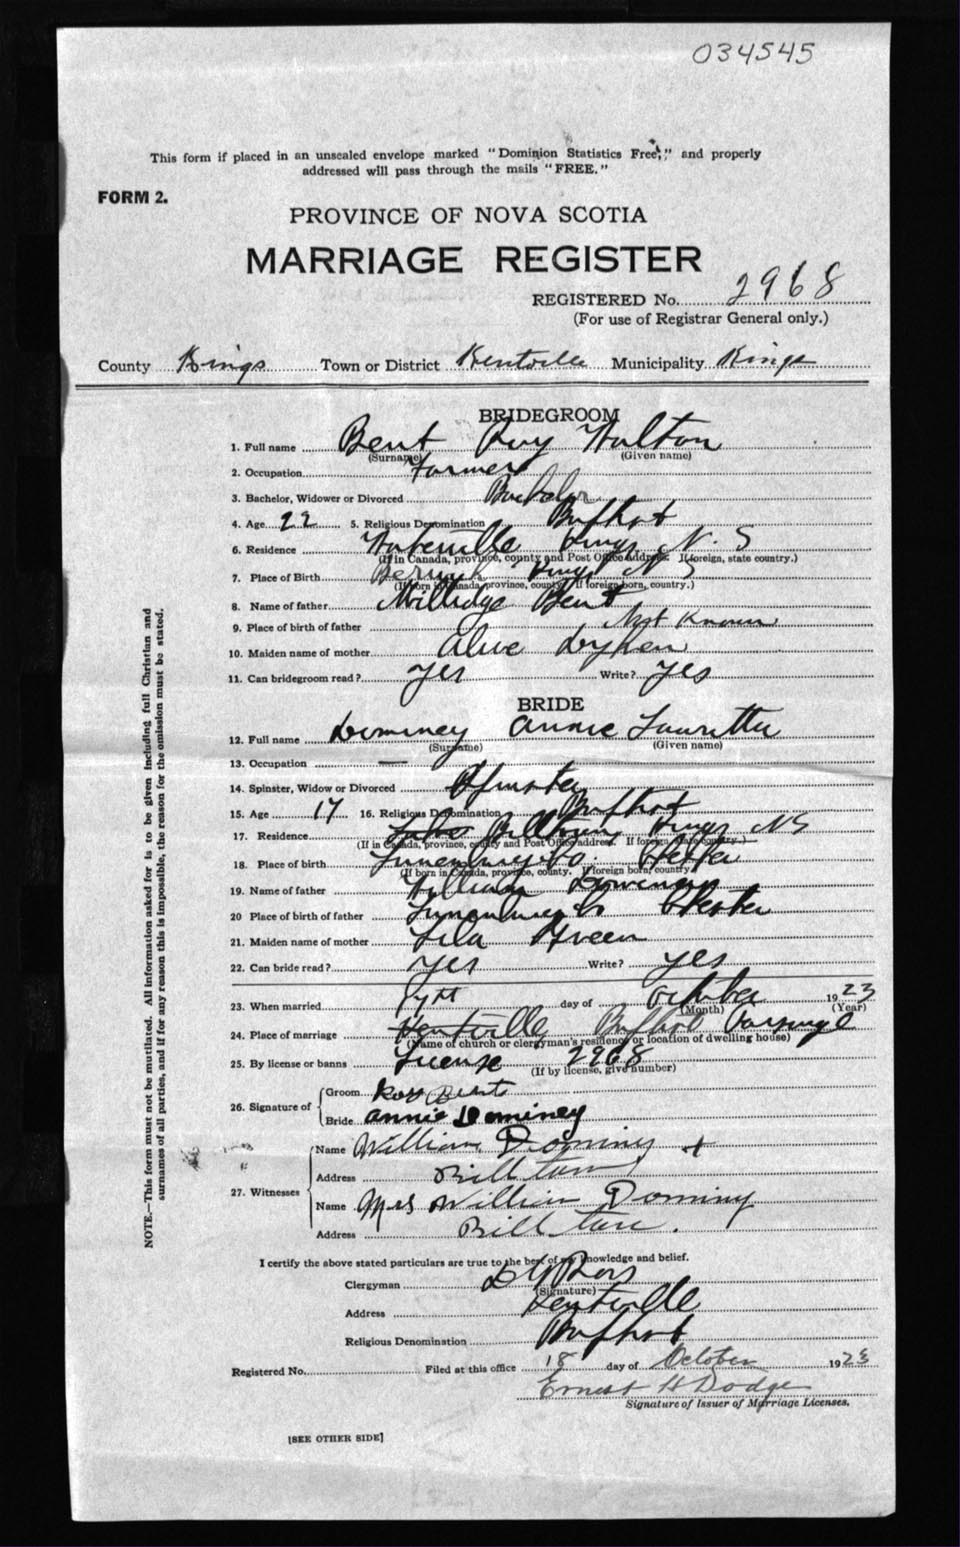 034545
This form if placed in an unsealed envelope marked "Dominion Statistics Free," and properly
addressed will pass through the mails "FREE."
FORM 2.
PROVINCE OF NOVA SCOTIA
MARRIAGE REGISTER
REGISTERED No. 2968
(For use of Registrar General only.)
County Kings Town or District Kentville Municipality Kings
BRIDEGROOM
1. Full name Bent Roy Walton
(Surname) (Given name)
2. Occupation Farmer
3. Bachelor, Widower or Divorced Bachelor
4. Age 22 5. Religious Denomination Baptist
6. Residence Waterville Kings N. S
(If in Canada, province, county and Post Office address. If foreign, state country.)
7. Place of Birth Berwick Kings N S
(If born in Canada, province, county. If foreign born, country.)
8. Name of father Milledge Bent
9. Place of birth of father Not Known
10. Maiden name of mother Alice
11. Can bridegroom read? Yes Write? Yes
BRIDE
12. Full name Dominey Annie Lauretta
(Surname) (Given name)
13. Occupation —
14. Spinster, Widow or Divorced Spinster
15. Age 17 16. Religious Denomination Baptist
17. Residence Billtown Kings NS
(If in Canada, province, county and Post Office address. If foreign state country.)
18. Place of birth Lunenburg Co. Chester
(If born in Canada, province, county. If foreign born, country.)
19. Name of father William Dominey
20 Place of birth of father Lunenburg Co Chester
21. Maiden name of mother Lila Green
22. Can bride read? Yes Write? Yes
23. When married day of October 1923
(Month) (Year)
24. Place of marriage Kentville Baptist Parsonage
(Name of church or clergyman's residence or location of dwelling house)
25. By license or banns License 2968
(If by license, give number)
26. Signature of Groom Roy Bent
Bride Annie Dominey
27. Witnesses Name William Dominy +
Address Billtown
Name Mrs William Dominy
Address Billtown.
I certify the above stated particulars are true to the best of my knowledge and belief.
Clergyman
(Signature)
Address Kentville
Religious Denomination Baptist
Registered No. Filed at this office 18 day of October 1923
Ernest H Dodge
Signature of Issuer of Marriage Licenses.
[SEE OTHER SIDE]
NOTE.—This form must not be mutilated. All information asked for is to be given including full Christian and
surnames of all parties, and if for any reason this is impossible, the reason for the omission must be stated.